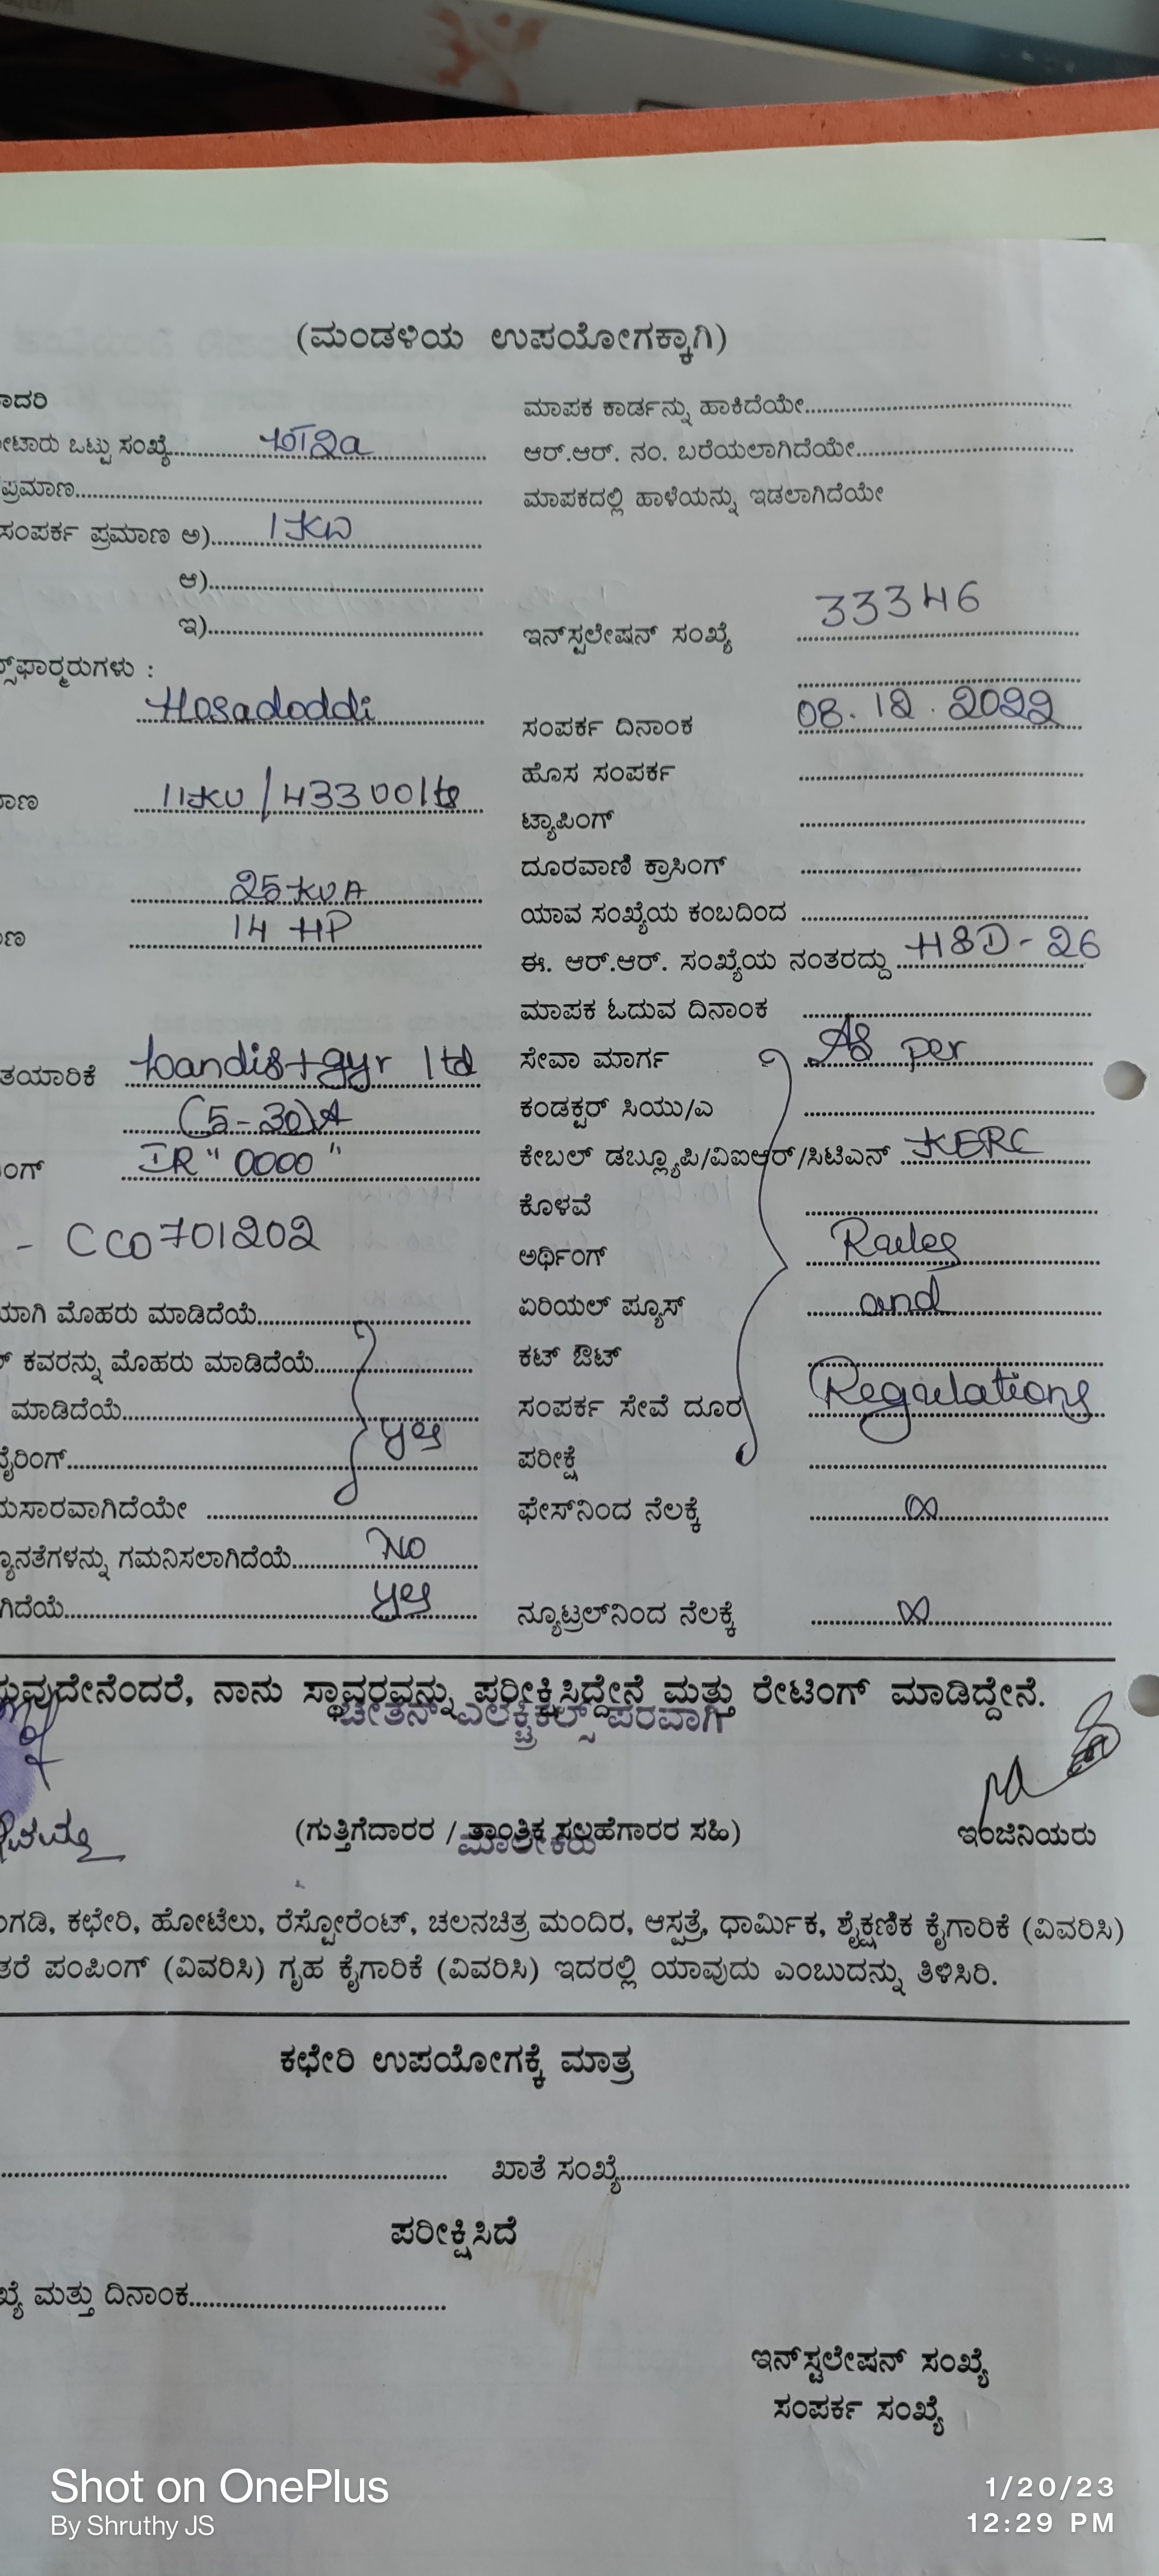 (ಮಂಡಳಿಯ ಉಪಯೋಗಕ್ಕಾಗಿ)
ಾದರಿ
ಮಾಪಕ ಕಾರ್ಡನ್ನು ಹಾಕಿದೆಯೇ
ೋಟಾರು ಒಟ್ಟು ಸಂಖ್ಯೆ
ಆರ್.ಆರ್. ನಂ. ಬರೆಯಲಾಗಿದೆಯೇ
ಪ್ರಮಾಣ
ಮಾಪಕದಲ್ಲಿ ಹಾಳೆಯನ್ನು ಇಡಲಾಗಿದೆಯೇ
ಸಂಪರ್ಕ ಪ್ರಮಾಣ ಅ) 1KW
ಆ)
ಇ)
ಇನ್‌ಸ್ಟಲೇಷನ್ ಸಂಖ್ಯೆ 33346
ಸ್‌ಫಾರ್ಮರುಗಳು :
Hosadoddi
ಸಂಪರ್ಕ ದಿನಾಂಕ 08.12.2022
ಹೊಸ ಸಂಪರ್ಕ
ಾಣ 11KV/433 Volts
ಟ್ಯಾಪಿಂಗ್
ದೂರವಾಣಿ ಕ್ರಾಸಿಂಗ್
25 KVA
ಯಾವ ಸಂಖ್ಯೆಯ ಕಂಬದಿಂದ
ಣ 14 HP
ಈ. ಆರ್.ಆರ್. ಸಂಖ್ಯೆಯ ನಂತರದ್ದು HSD-26
ಮಾಪಕ ಓದುವ ದಿನಾಂಕ
ತಯಾರಿಕೆ Landis+gyr ltd
ಸೇವಾ ಮಾರ್ಗ As per
(5-30)A
ಕಂಡಕ್ಟರ್ ಸಿಯು/ಎ
ಂಗ್ IR "0000"
ಕೇಬಲ್ ಡಬ್ಲ್ಯೂಪಿ/ವಿಐಆರ್/ಸಿಟಿಎನ್ KERC
ಕೊಳವೆ
- CC0701202
ಅರ್ಥಿಂಗ್ Rules
ಯಾಗಿ ಮೊಹರು ಮಾಡಿದೆಯೆ
ಏರಿಯಲ್ ಫ್ಯೂಸ್ and
ಕವರನ್ನು ಮೊಹರು ಮಾಡಿದೆಯೆ
ಕಟ್ ಔಟ್
ಮಾಡಿದೆಯೆ yes
ಸಂಪರ್ಕ ಸೇವೆ ದೂರ Regulations
ೈರಿಂಗ್
ಪರೀಕ್ಷೆ
ುಸಾರವಾಗಿದೆಯೇ
ಫೇಸ್‌ನಿಂದ ನೆಲಕ್ಕೆ ∞
್ಯೂನತೆಗಳನ್ನು ಗಮನಿಸಲಾಗಿದೆಯೆ No
ಗಿದೆಯೆ yes
ನ್ಯೂಟ್ರಲ್‌ನಿಂದ ನೆಲಕ್ಕೆ ∞
ುವುದೇನೆಂದರೆ, ನಾನು ಸ್ಥಾವರವನ್ನು ಪರೀಕ್ಷಿಸಿದ್ದೇನೆ ಮತ್ತು ರೇಟಿಂಗ್ ಮಾಡಿದ್ದೇನೆ.
ಚೇತನ್ ಎಲೆಕ್ಟ್ರಿಕಲ್ಸ್ ಪರವಾಗಿ
(ಗುತ್ತಿಗೆದಾರರ / ತಾಂತ್ರಿಕ ಸಲಹೆಗಾರರ ಸಹಿ) ಇಂಜಿನಿಯರು
ಮಾಲೀಕರು
ಂಗಡಿ, ಕಛೇರಿ, ಹೋಟೆಲು, ರೆಸ್ಟೋರೆಂಟ್, ಚಲನಚಿತ್ರ ಮಂದಿರ, ಆಸ್ಪತ್ರೆ, ಧಾರ್ಮಿಕ, ಶೈಕ್ಷಣಿಕ ಕೈಗಾರಿಕೆ (ವಿವರಿಸಿ)
ತರೆ ಪಂಪಿಂಗ್ (ವಿವರಿಸಿ) ಗೃಹ ಕೈಗಾರಿಕೆ (ವಿವರಿಸಿ) ಇದರಲ್ಲಿ ಯಾವುದು ಎಂಬುದನ್ನು ತಿಳಿಸಿರಿ.
ಕಛೇರಿ ಉಪಯೋಗಕ್ಕೆ ಮಾತ್ರ
ಖಾತೆ ಸಂಖ್ಯೆ
ಪರೀಕ್ಷಿಸಿದೆ
ಖ್ಯೆ ಮತ್ತು ದಿನಾಂಕ
ಇನ್‌ಸ್ಟಲೇಷನ್ ಸಂಖ್ಯೆ
ಸಂಪರ್ಕ ಸಂಖ್ಯೆ
Shot on OnePlus
By Shruthy JS
1/20/23
12:29 PM